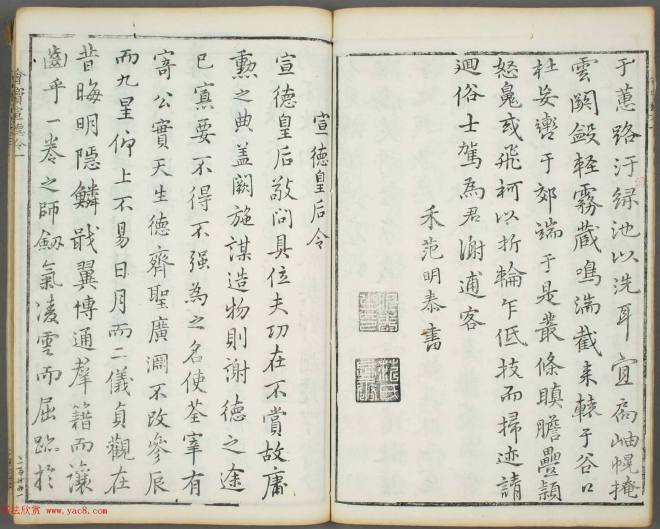 于蕙路汙綠池以洗耳宜扃岫幌掩
雲關斂輕霧藏鳴湍截来轅于谷口
杜妄轡于郊端于是叢條瞋膽疊穎
怒䰟或飛柯以折輪乍低技而掃迹請
迴俗士駕為君謝逋客
禾范明泰書
宣德皇后令
宣德皇后敬問具位夫功在不賞故庸
勲之典盖闕施謀造物則謝德之途
已寡要不得不强為之名使荃宰有
寄公實天生德齊聖廣淵不改參辰
而九星仰上不易日月而二儀貞觀在
昔晦明隱鱗戢翼博通羣籍而讓
齒乎一卷之師劔氣凌雲而屈跡於
書法欣赏 www.yac8.com